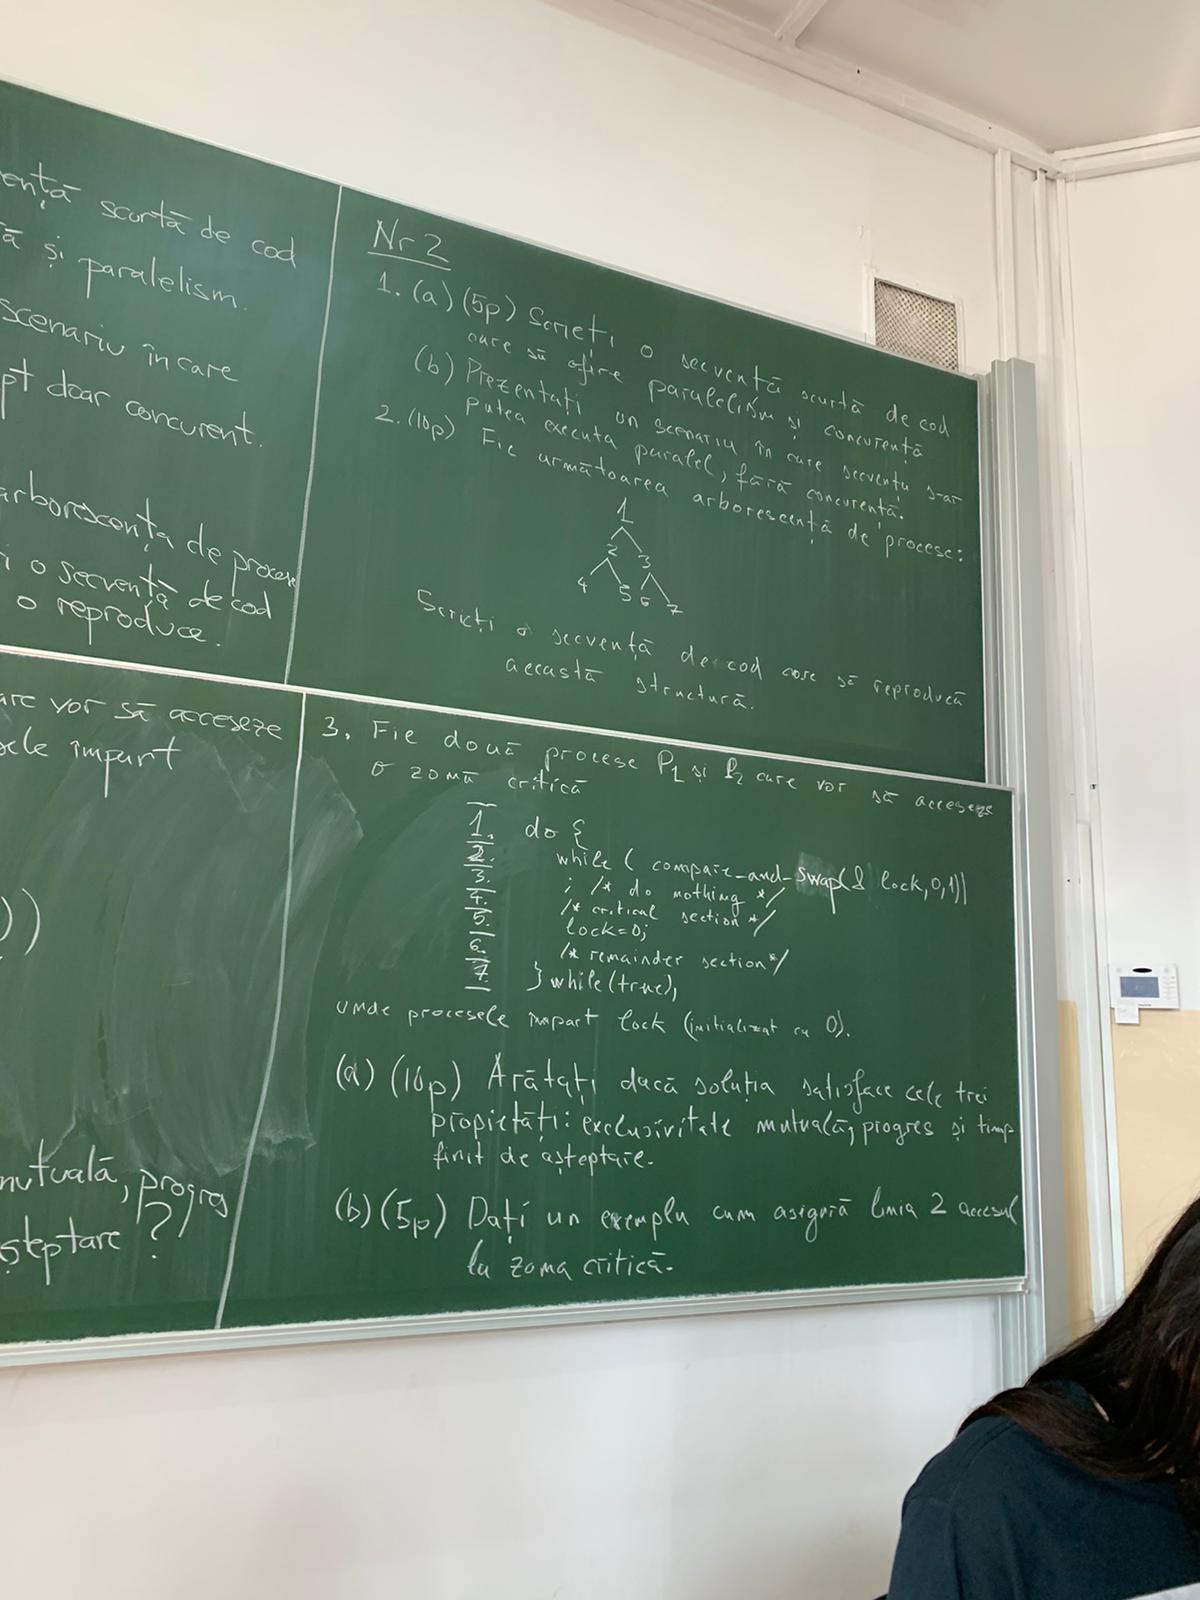 ență scurtă de cod
ă și paralelism.
scenariu în care
pt doar concurent.
arborescența de procese
i o secvență de cod
o reproduce.
Nr 2
1. (a) (5p) Scrieți o secvență scurtă de cod
care să ofere paralelism și concurență
(b) Prezentați un scenariu în care secvența s-ar
putea executa paralel, fără concurență.
2. (10p) Fie următoarea arborescență de procese:
1
2 3
4 5 6 7
Scrieți o secvență de cod care să reproducă
această structură.
are vor să acceseze
sele împart
))
mutuală, progres
șteptare ?
3. Fie două procese P1 și P2 care vor să acceseze
o zonă critică
1. do {
2. while ( compare_and_swap(& lock,0,1))
3. ; /* do nothing */
4. /* critical section */
5. lock=0;
6. /* remainder section */
7. } while (true);
unde procesele împart lock (initializat cu 0).
(a) (10p) Arătați dacă soluția satisface cele trei
propietăți: exclusivitate mutuală, progres și timp
finit de așteptare.
(b) (5p) Dați un exemplu cum asigură linia 2 accesul
la zona critică.